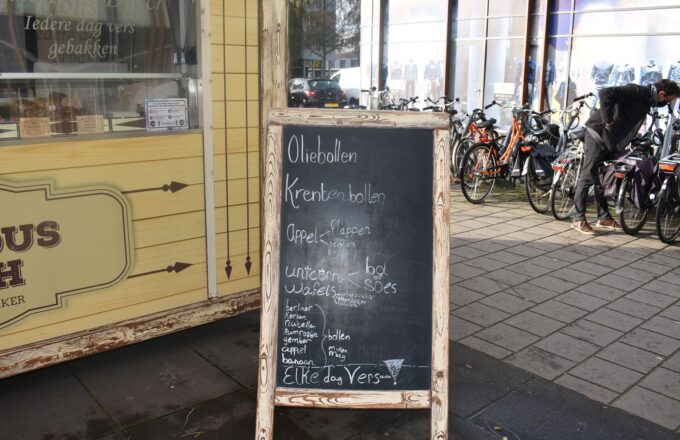 Iedere dag vers
gebakken
OUS
H
KER
Oliebollen
Krentenbollen
Appel < flappen
beignets
unicorn < bol
wafels soes
berliner
kersen
nutella
Rumrozijn
gember
appel
banaan
bollen
mag
Elke dag Vers